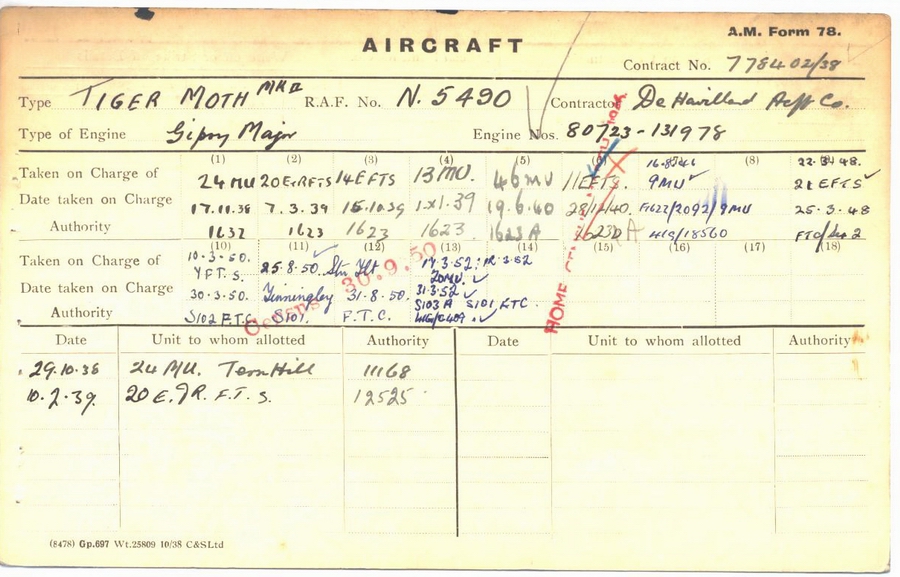 A.M. Form 78.
AIRCRAFT
Contract No. 778402/38
Type TIGER MOTH MK II R.A.F. No. N.5490 Contractor De Havilland Acft Co.
Type of Engine Gipsy Major Engine Nos. 80723-131978
(1) (2) (3) (4) (5) (8)
Taken on Charge of 24 MU 20 E&RFTS 14 EFTS 13 MU. 46 MU 11 EFTS. 9MU 21 EFTS
Date taken on Charge 17.11.38 7.3.39 15.10.39 1.XI.39 19.6.40 25.3.48
Authority 1632 1623 1623 1623 1623 A 41G/18560
(10) (11) (12) (13) (14) (15) (16) (17) (18)
Taken on Charge of 10.3.50. 25.8.50. Stn Flt 12.3.52
7 F.T.S. 20MU.
Date taken on Charge 30.3.50. Finningley 31.8.50. 31.3.52
Authority S102 F.T.C. S101. F.T.C. S103A S101 FTC.
Census 30.9.50
HOME CENSUS
Date Unit to whom allotted Authority Date Unit to whom allotted Authority
29.10.38 24 MU. Tern Hill 11168
10.2.39. 20 E.&R.F.T.S. 12525
(8478) Gp.697 Wt.25809 10/38 C&SLtd